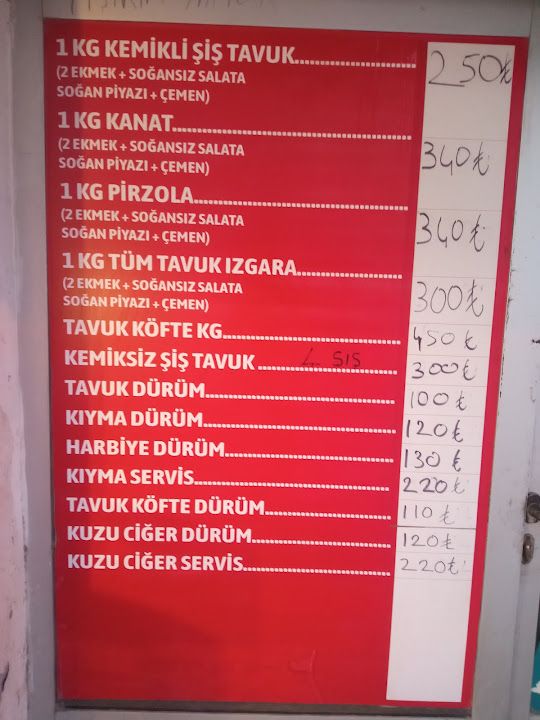 1 KG KEMİKLİ ŞİŞ TAVUK 250₺
(2 EKMEK + SOĞANSIZ SALATA
SOĞAN PİYAZI + ÇEMEN)
1 KG KANAT 340₺
(2 EKMEK + SOĞANSIZ SALATA
SOĞAN PİYAZI + ÇEMEN)
1 KG PİRZOLA 340₺
(2 EKMEK + SOĞANSIZ SALATA
SOĞAN PİYAZI + ÇEMEN)
1 KG TÜM TAVUK IZGARA 300₺
(2 EKMEK + SOĞANSIZ SALATA
SOĞAN PİYAZI + ÇEMEN)
TAVUK KÖFTE KG 450₺
KEMİKSİZ ŞİŞ TAVUK SIS 300₺
TAVUK DÜRÜM 100₺
KIYMA DÜRÜM 120₺
HARBİYE DÜRÜM 130₺
KIYMA SERVİS 220₺
TAVUK KÖFTE DÜRÜM 110₺
KUZU CİĞER DÜRÜM 120₺
KUZU CİĞER SERVİS 220₺